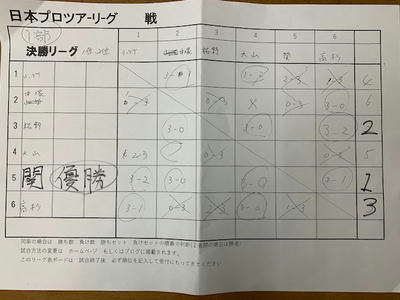 日本プロツアーリーグ 戦
1部
決勝リーグ 1位,2位
1 2 3 4 5 6
拓野 大山 関 高杉
1 4
2 0-3 0-3 X 0-3 3-0 6
3 拓野 3-0 3-0 3-2 2
4 大山 2-3 0-3 5
5 関 優勝 3-2 3-0 3-0 3-1 1
6 高杉 3-1 0-3 2-3 3-0 1-3 3
同率の場合は 勝ち数 負け数 勝ちセット 負けセットの順番で判断(2者間の場合は勝者)
試合方法の変更は ホームページ もしくはブログに掲載されます。
このリーグ表ボードは 試合終了後 必ず順位を記入して受付にもってきてください